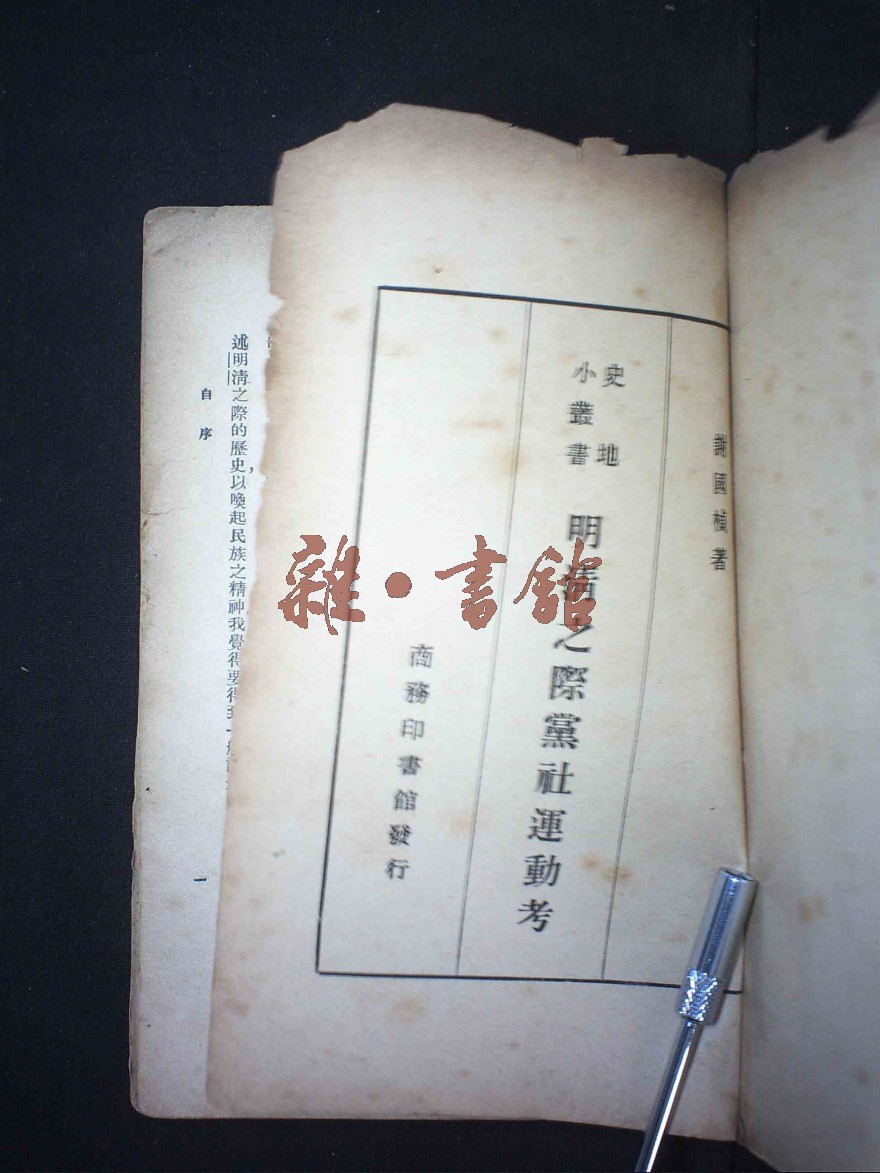 謝國楨著
史地
小叢書
明清之際黨社運動考
商務印書館發行
述明清之際的歷史，以喚起民族之精神我覺得要得到一
自序
一
雜·書館